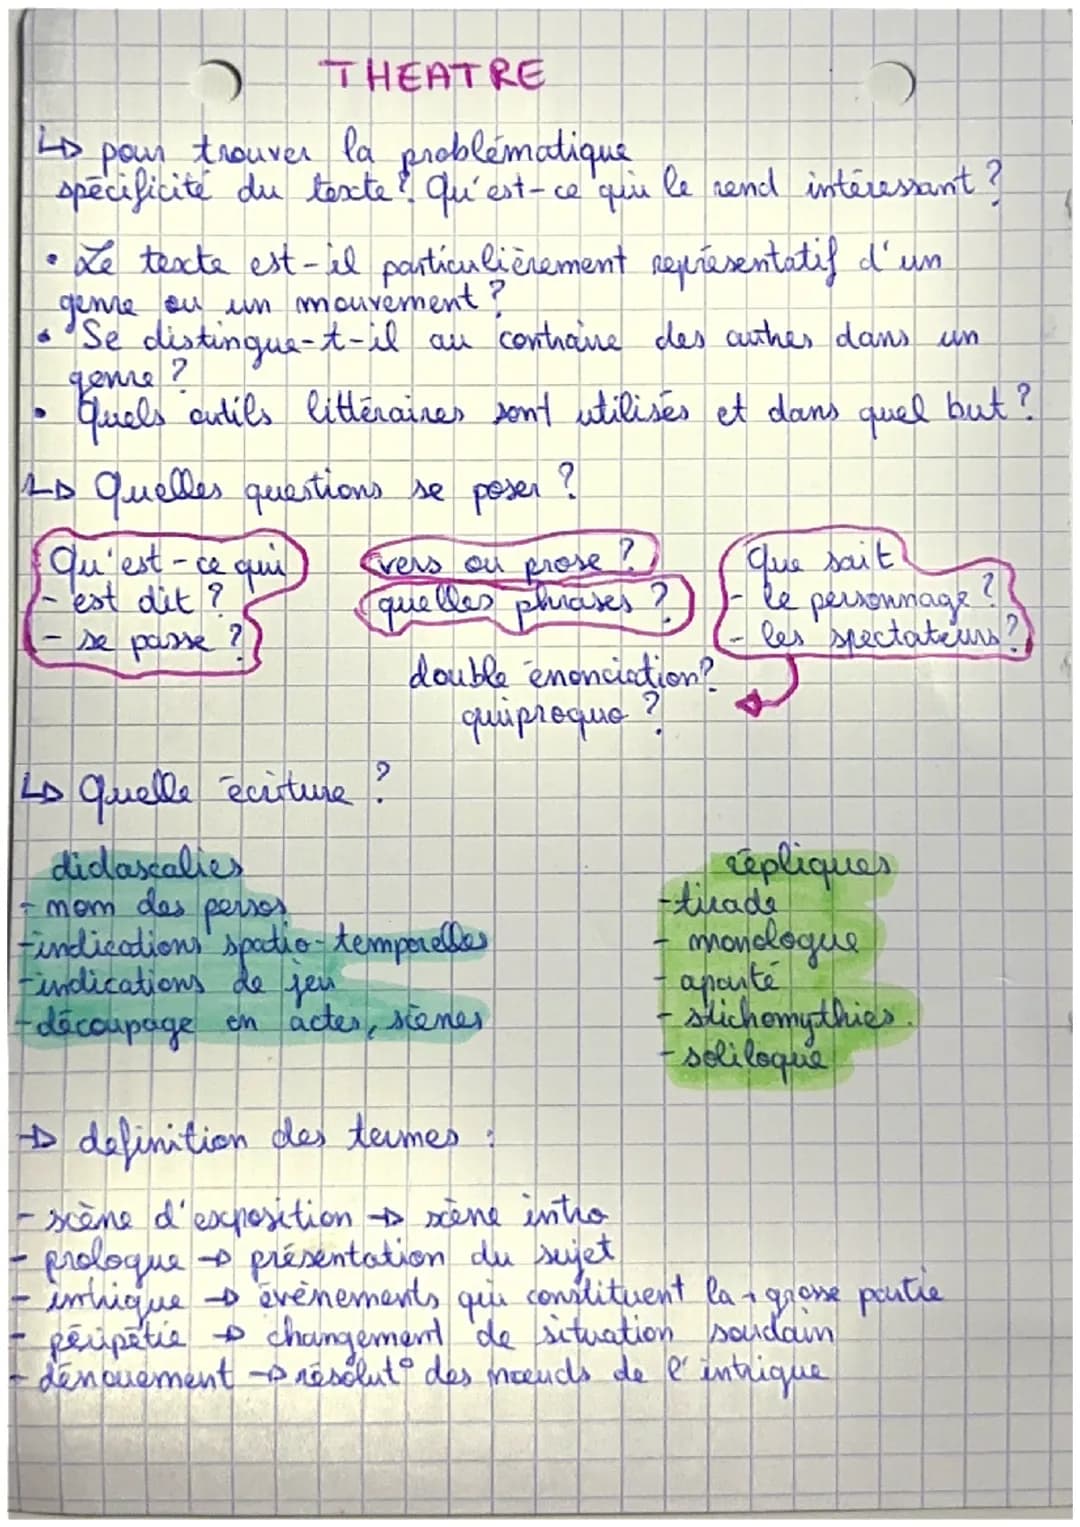 THEATRE
↳ pour trouver la problématique
spécificité du texte ? Qu'est-ce qui le rend intéressant ?
• Le texte est-il particulièrement représentatif d'un
genre ou un mouvement ?
• Se distingue-t-il au contraire des autres dans un
genre ?
• Quels outils littéraires sont utilisés et dans quel but ?
↳ Quelles questions se poser ?
Qu'est-ce qui
- est dit ?
- se passe ?
vers ou prose ?
quelles phrases ?
Que sait
- le personnage ?
- les spectateurs ?
double énonciation ?
quiproquo ?
↳ Quelle écriture ?
didascalies
- nom des persos
- indications spatio-temporelles
- indications de jeu
- découpage en actes, scènes
répliques
- tirade
- monologue
- aparté
- stichomythies.
- soliloque
→ definition des termes :
- scène d'exposition → scène intro
- prologue → présentation du sujet
- intrigue → évènements qui constituent la + grosse partie
- péripétie → changement de situation soudain
- dénouement → résolut° des nœuds de l'intrigue